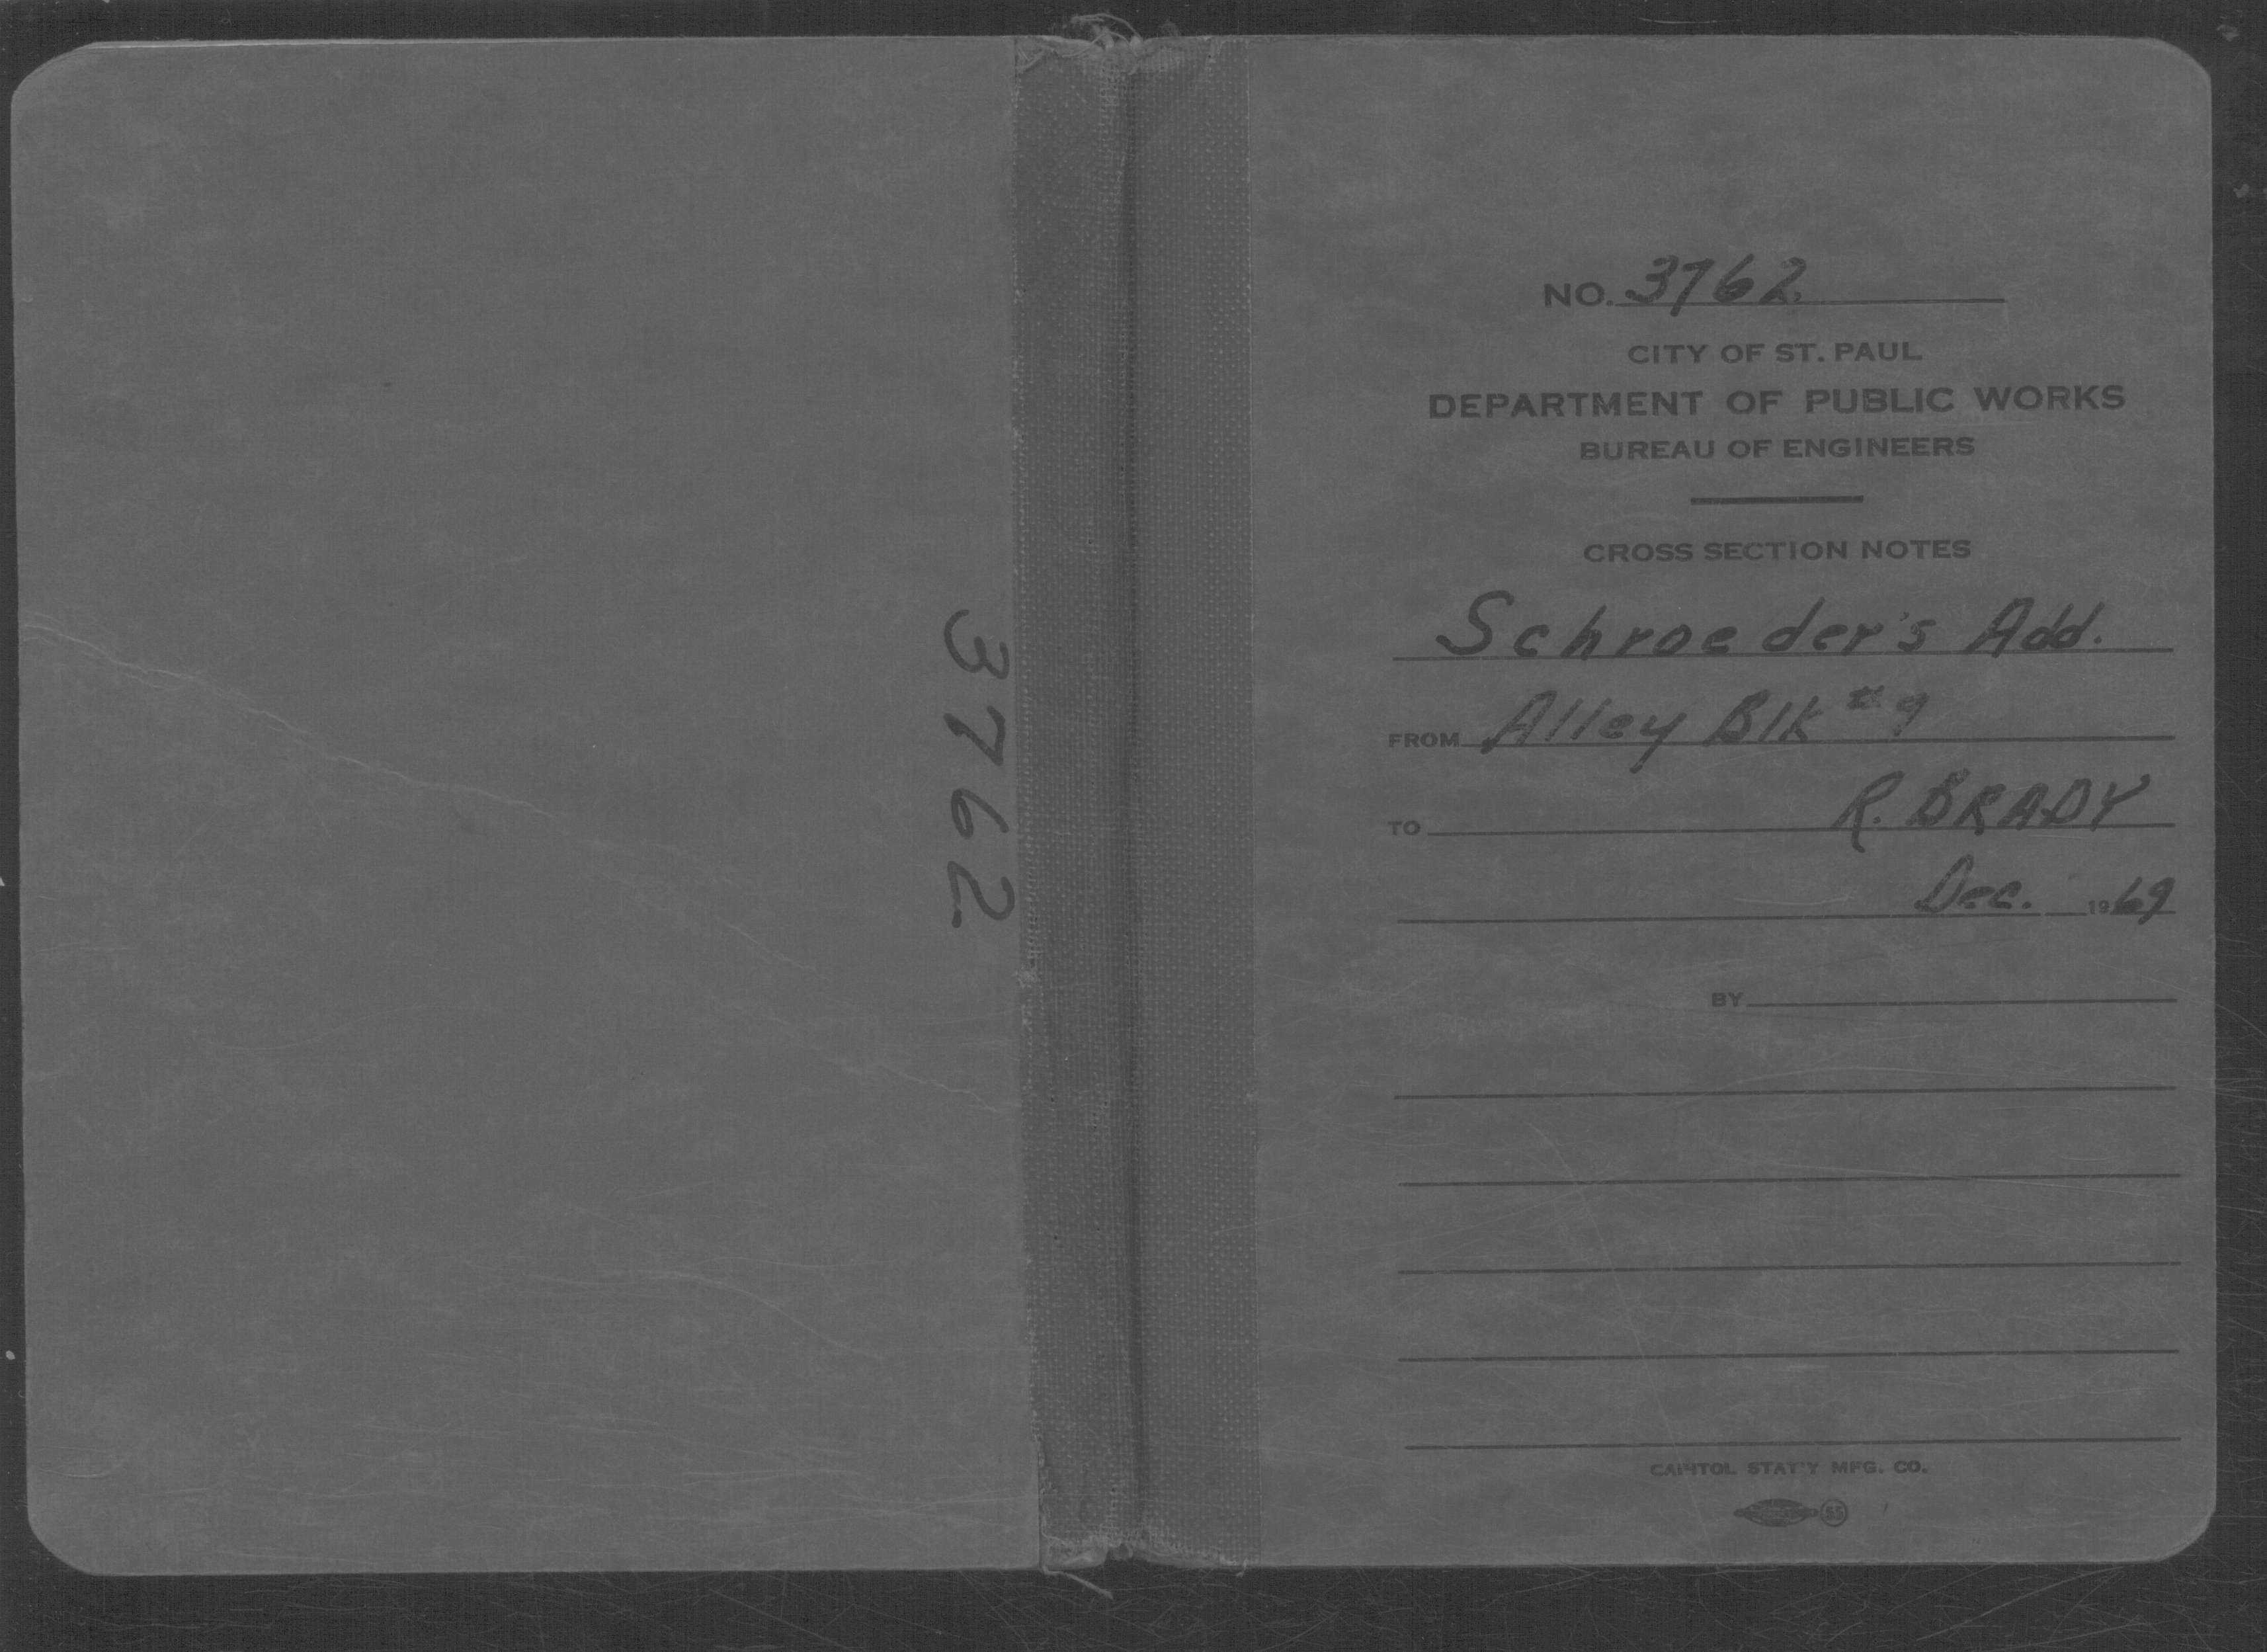 3762
NO. 3762
CITY OF ST. PAUL
DEPARTMENT OF PUBLIC WORKS
BUREAU OF ENGINEERS
CROSS SECTION NOTES
Schroeder's Add.
FROM Alley Blk #9
TO R. BRADY
Dec. 1969
BY
CAPITOL STAT'Y MFG. CO.
55